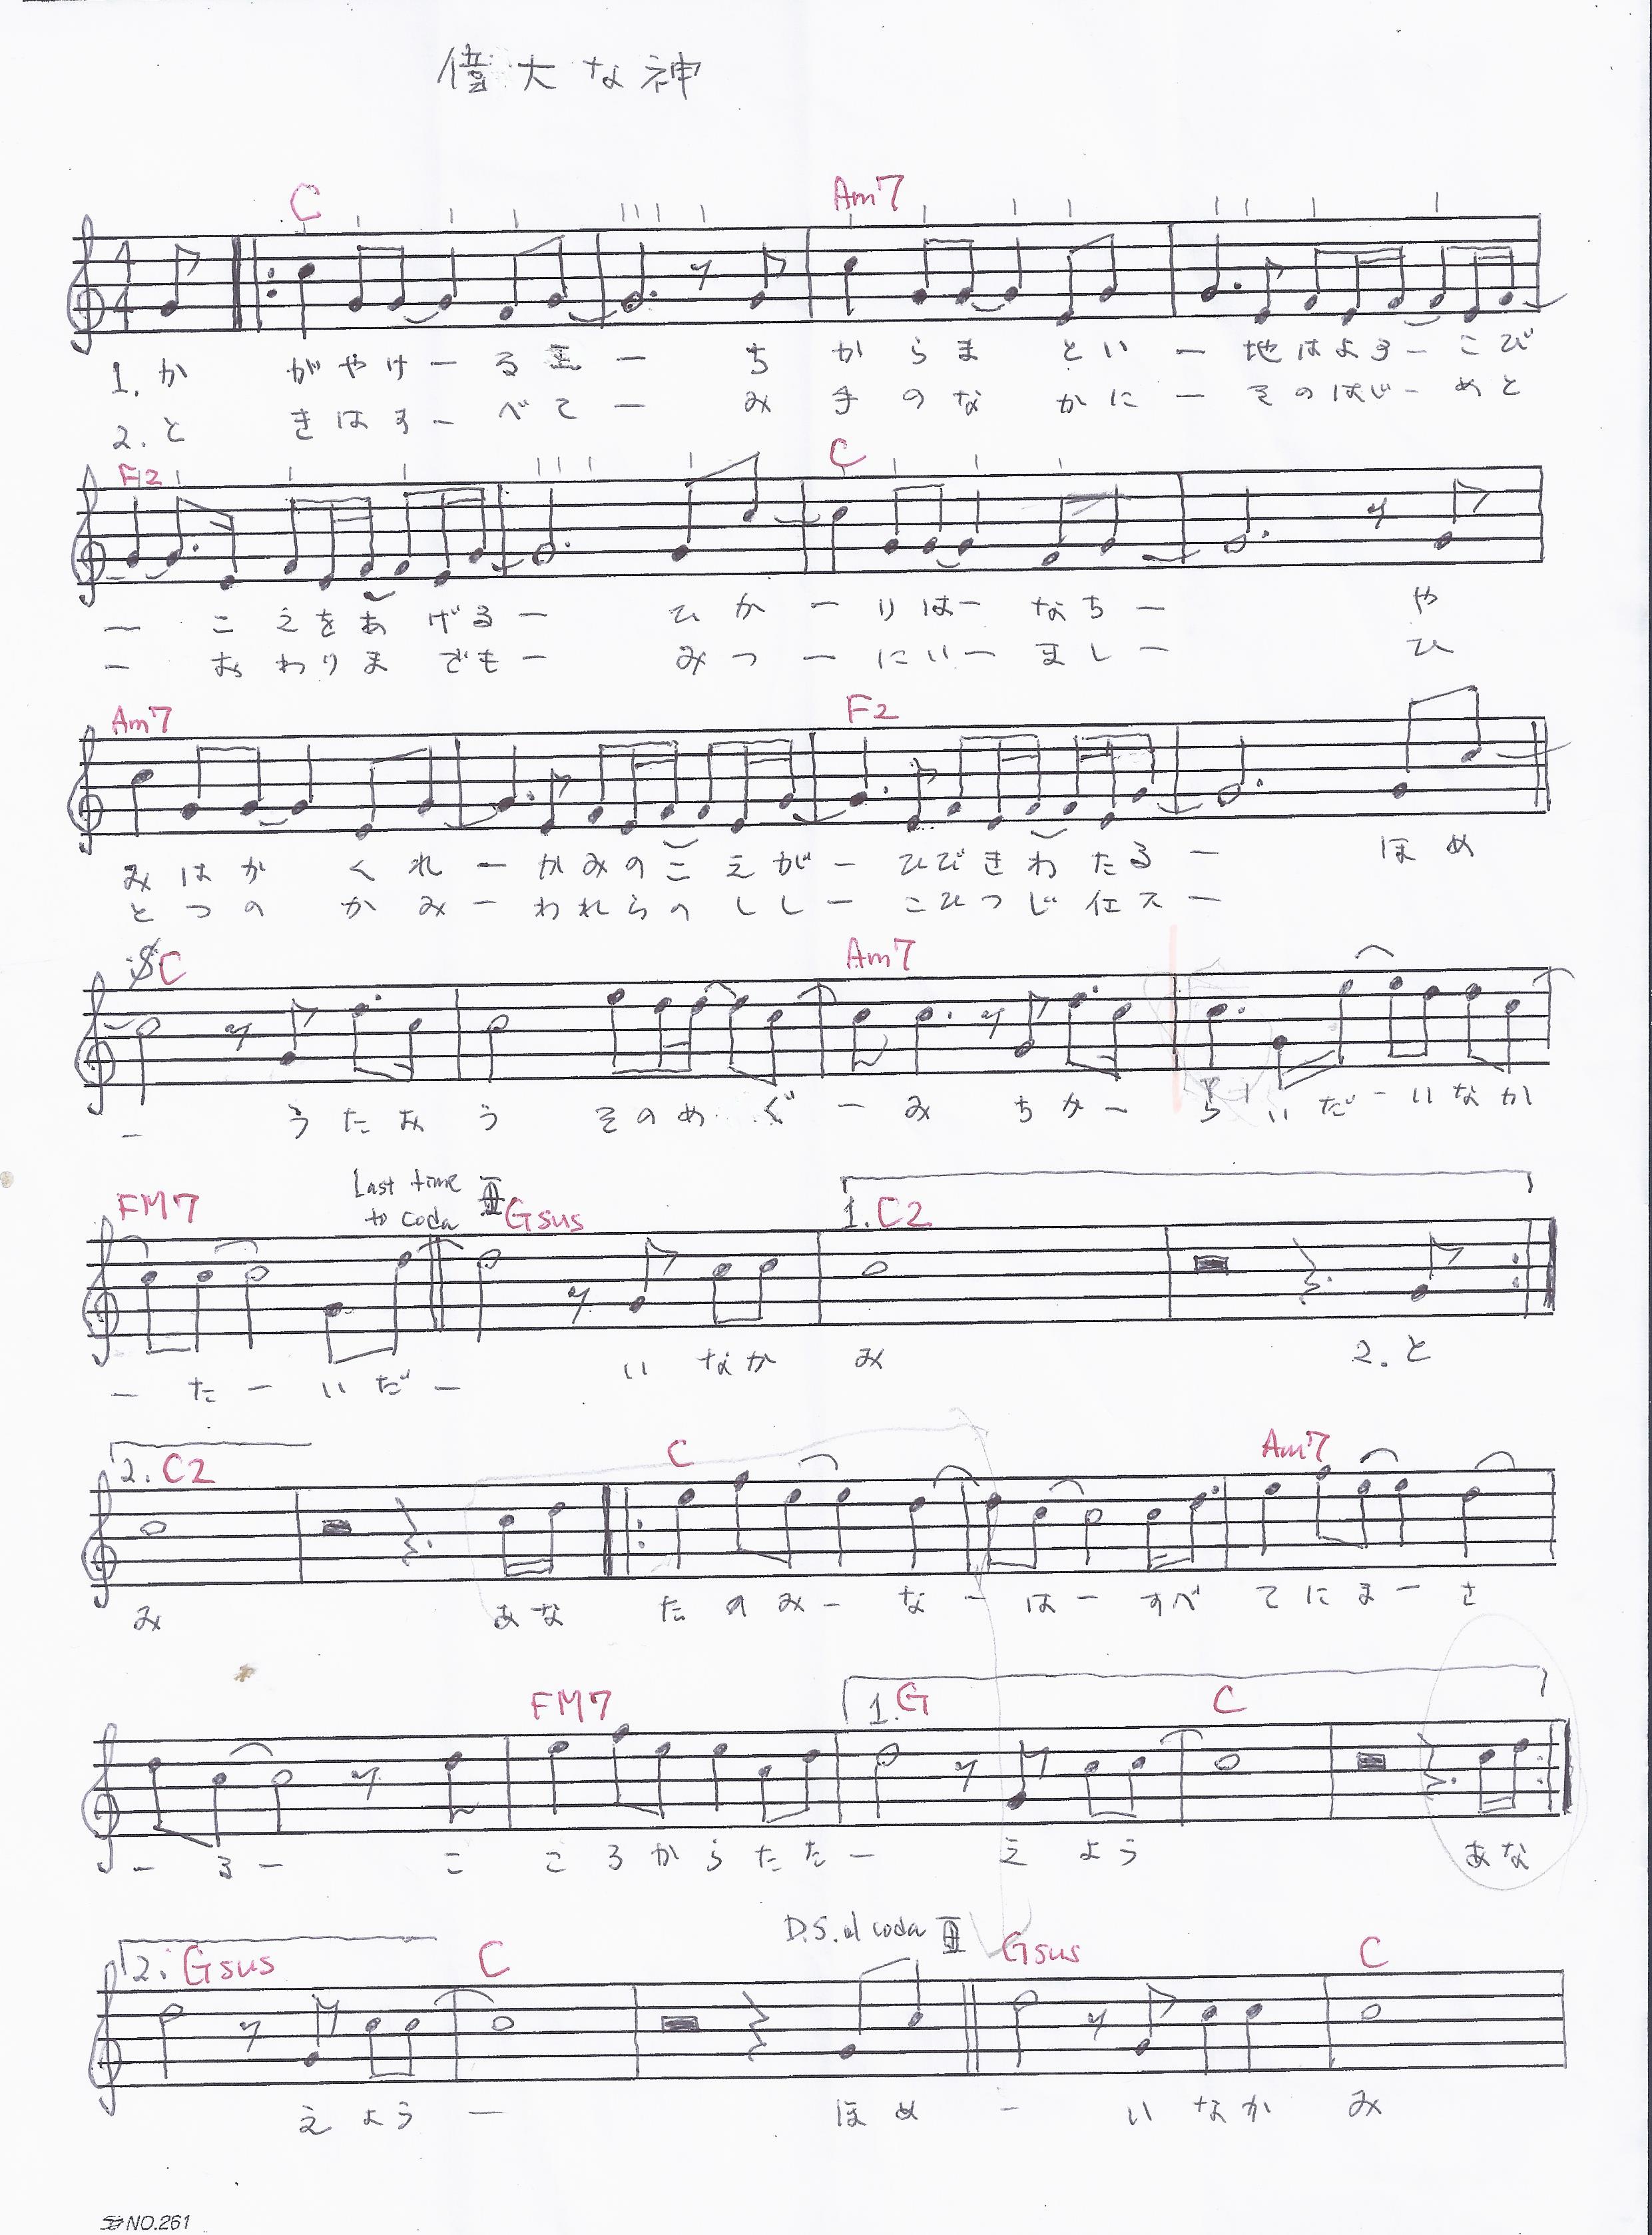 偉大な神
C Am7
1. か がやけーる王ー ちからまといー地はよろーこび
2. と きはすーべてー み手のなかにーそのはじーめと
F2 C
ー こえをあげるー ひかーりはーなちー や
ー おわりまでもー みつーにいーましー ひ
Am7 F2
みはかくれーかみのこえがーひびきわたるー ほめ
とつのかみーわれらのししーこひつじイエスー
C Am7
ー うたおう そのめぐーみ ちかーらいだーいなか
FM7 Last time to coda Gsus 1. C2
ーたーいだー いなか み 2. と
2. C2 C Am7
み あな たのみーなーはーすべてにまーさ
FM7 1. G C
ーるー こころからたたーえよう あな
2. Gsus C D.S. al coda Gsus C
えようー ほめ ーいなか み
NO.261